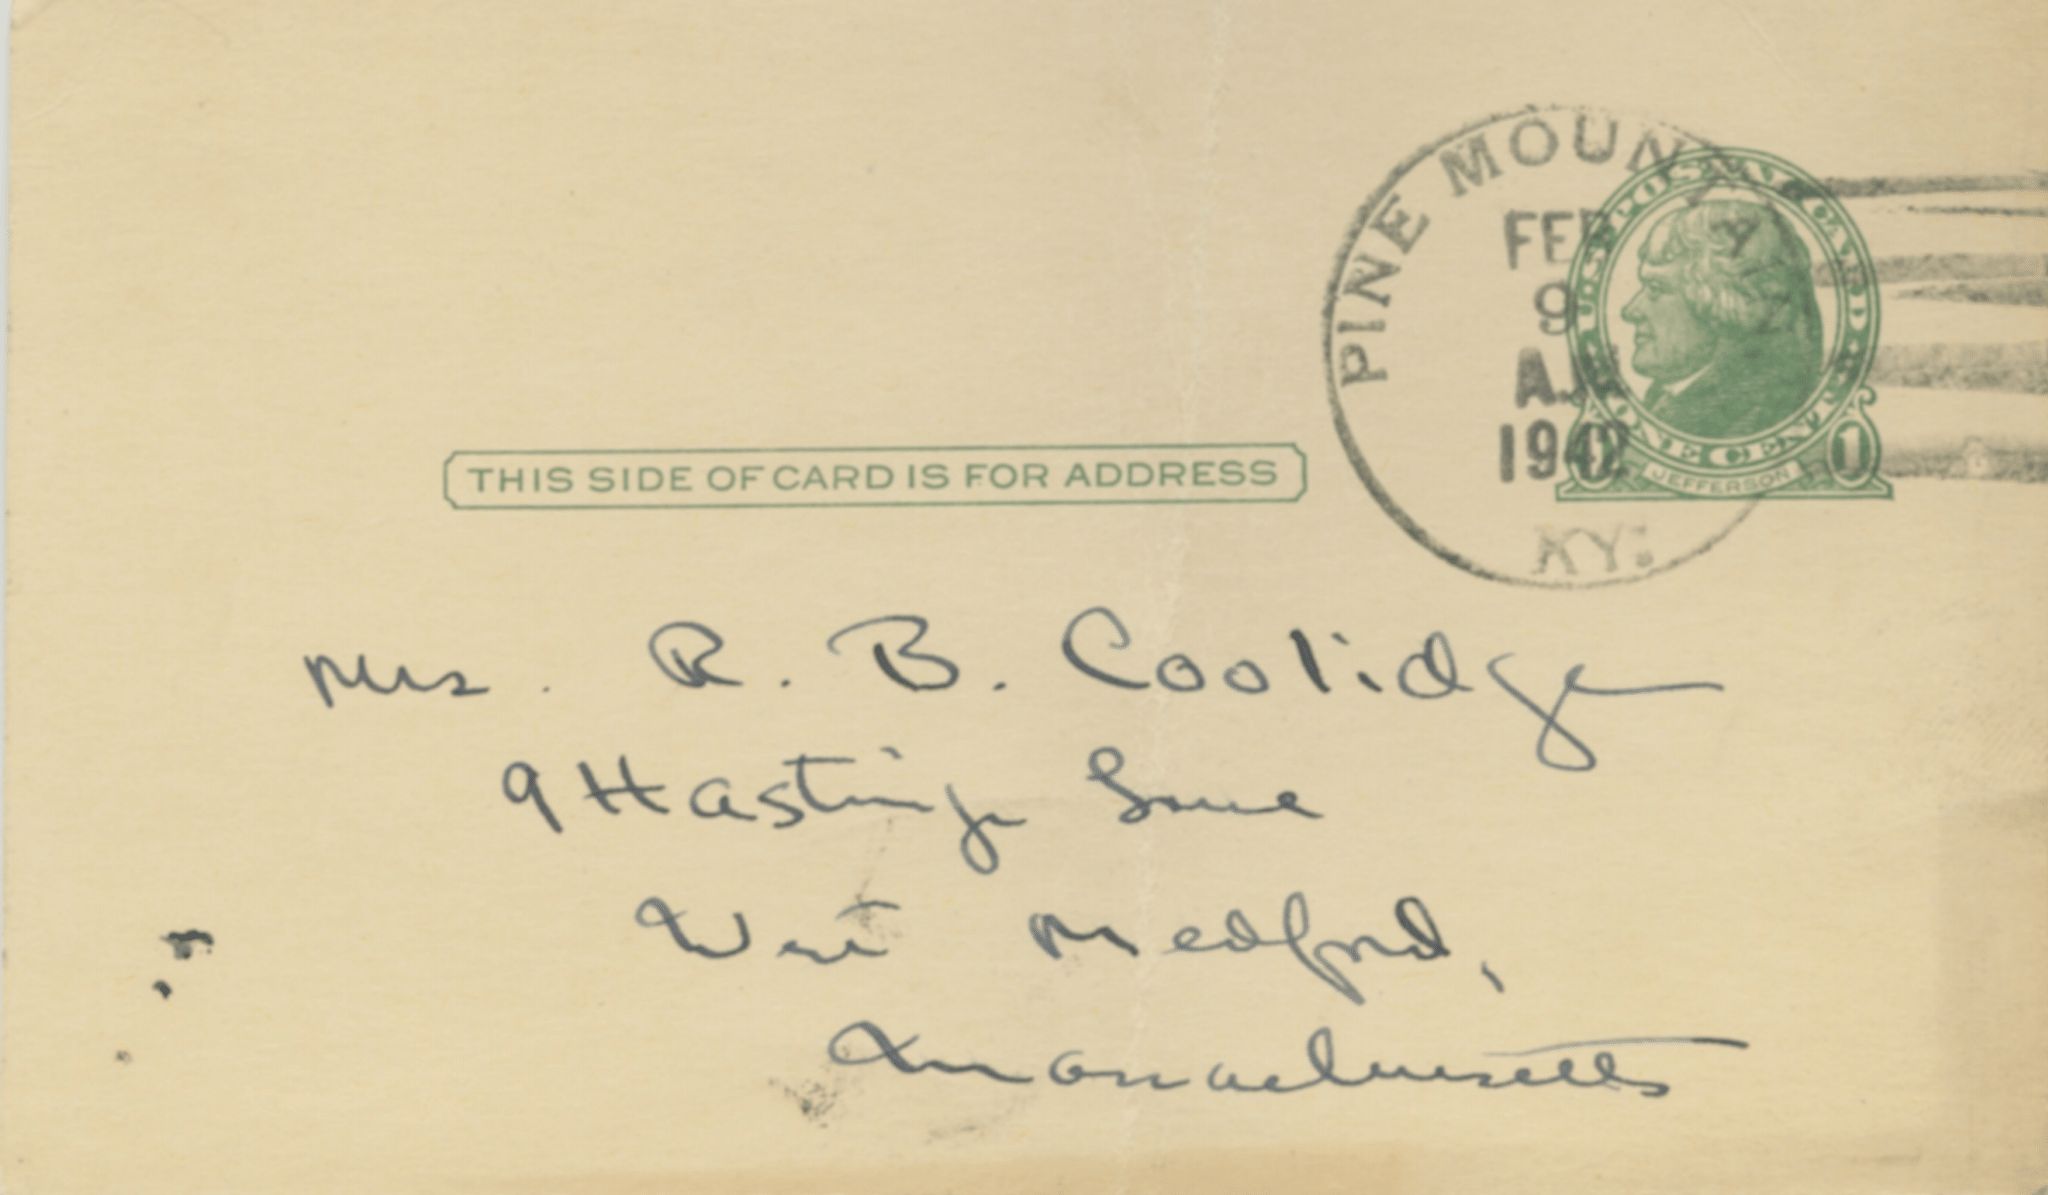 PINE MOUNTAIN
FEB
9
A.M.
1942
KY.
U.S. POSTAL CARD
ONE CENT
1 1
JEFFERSON
THIS SIDE OF CARD IS FOR ADDRESS
Mrs. R. B. Coolidge
9 Hastings Lane
West Medford,
Massachusetts